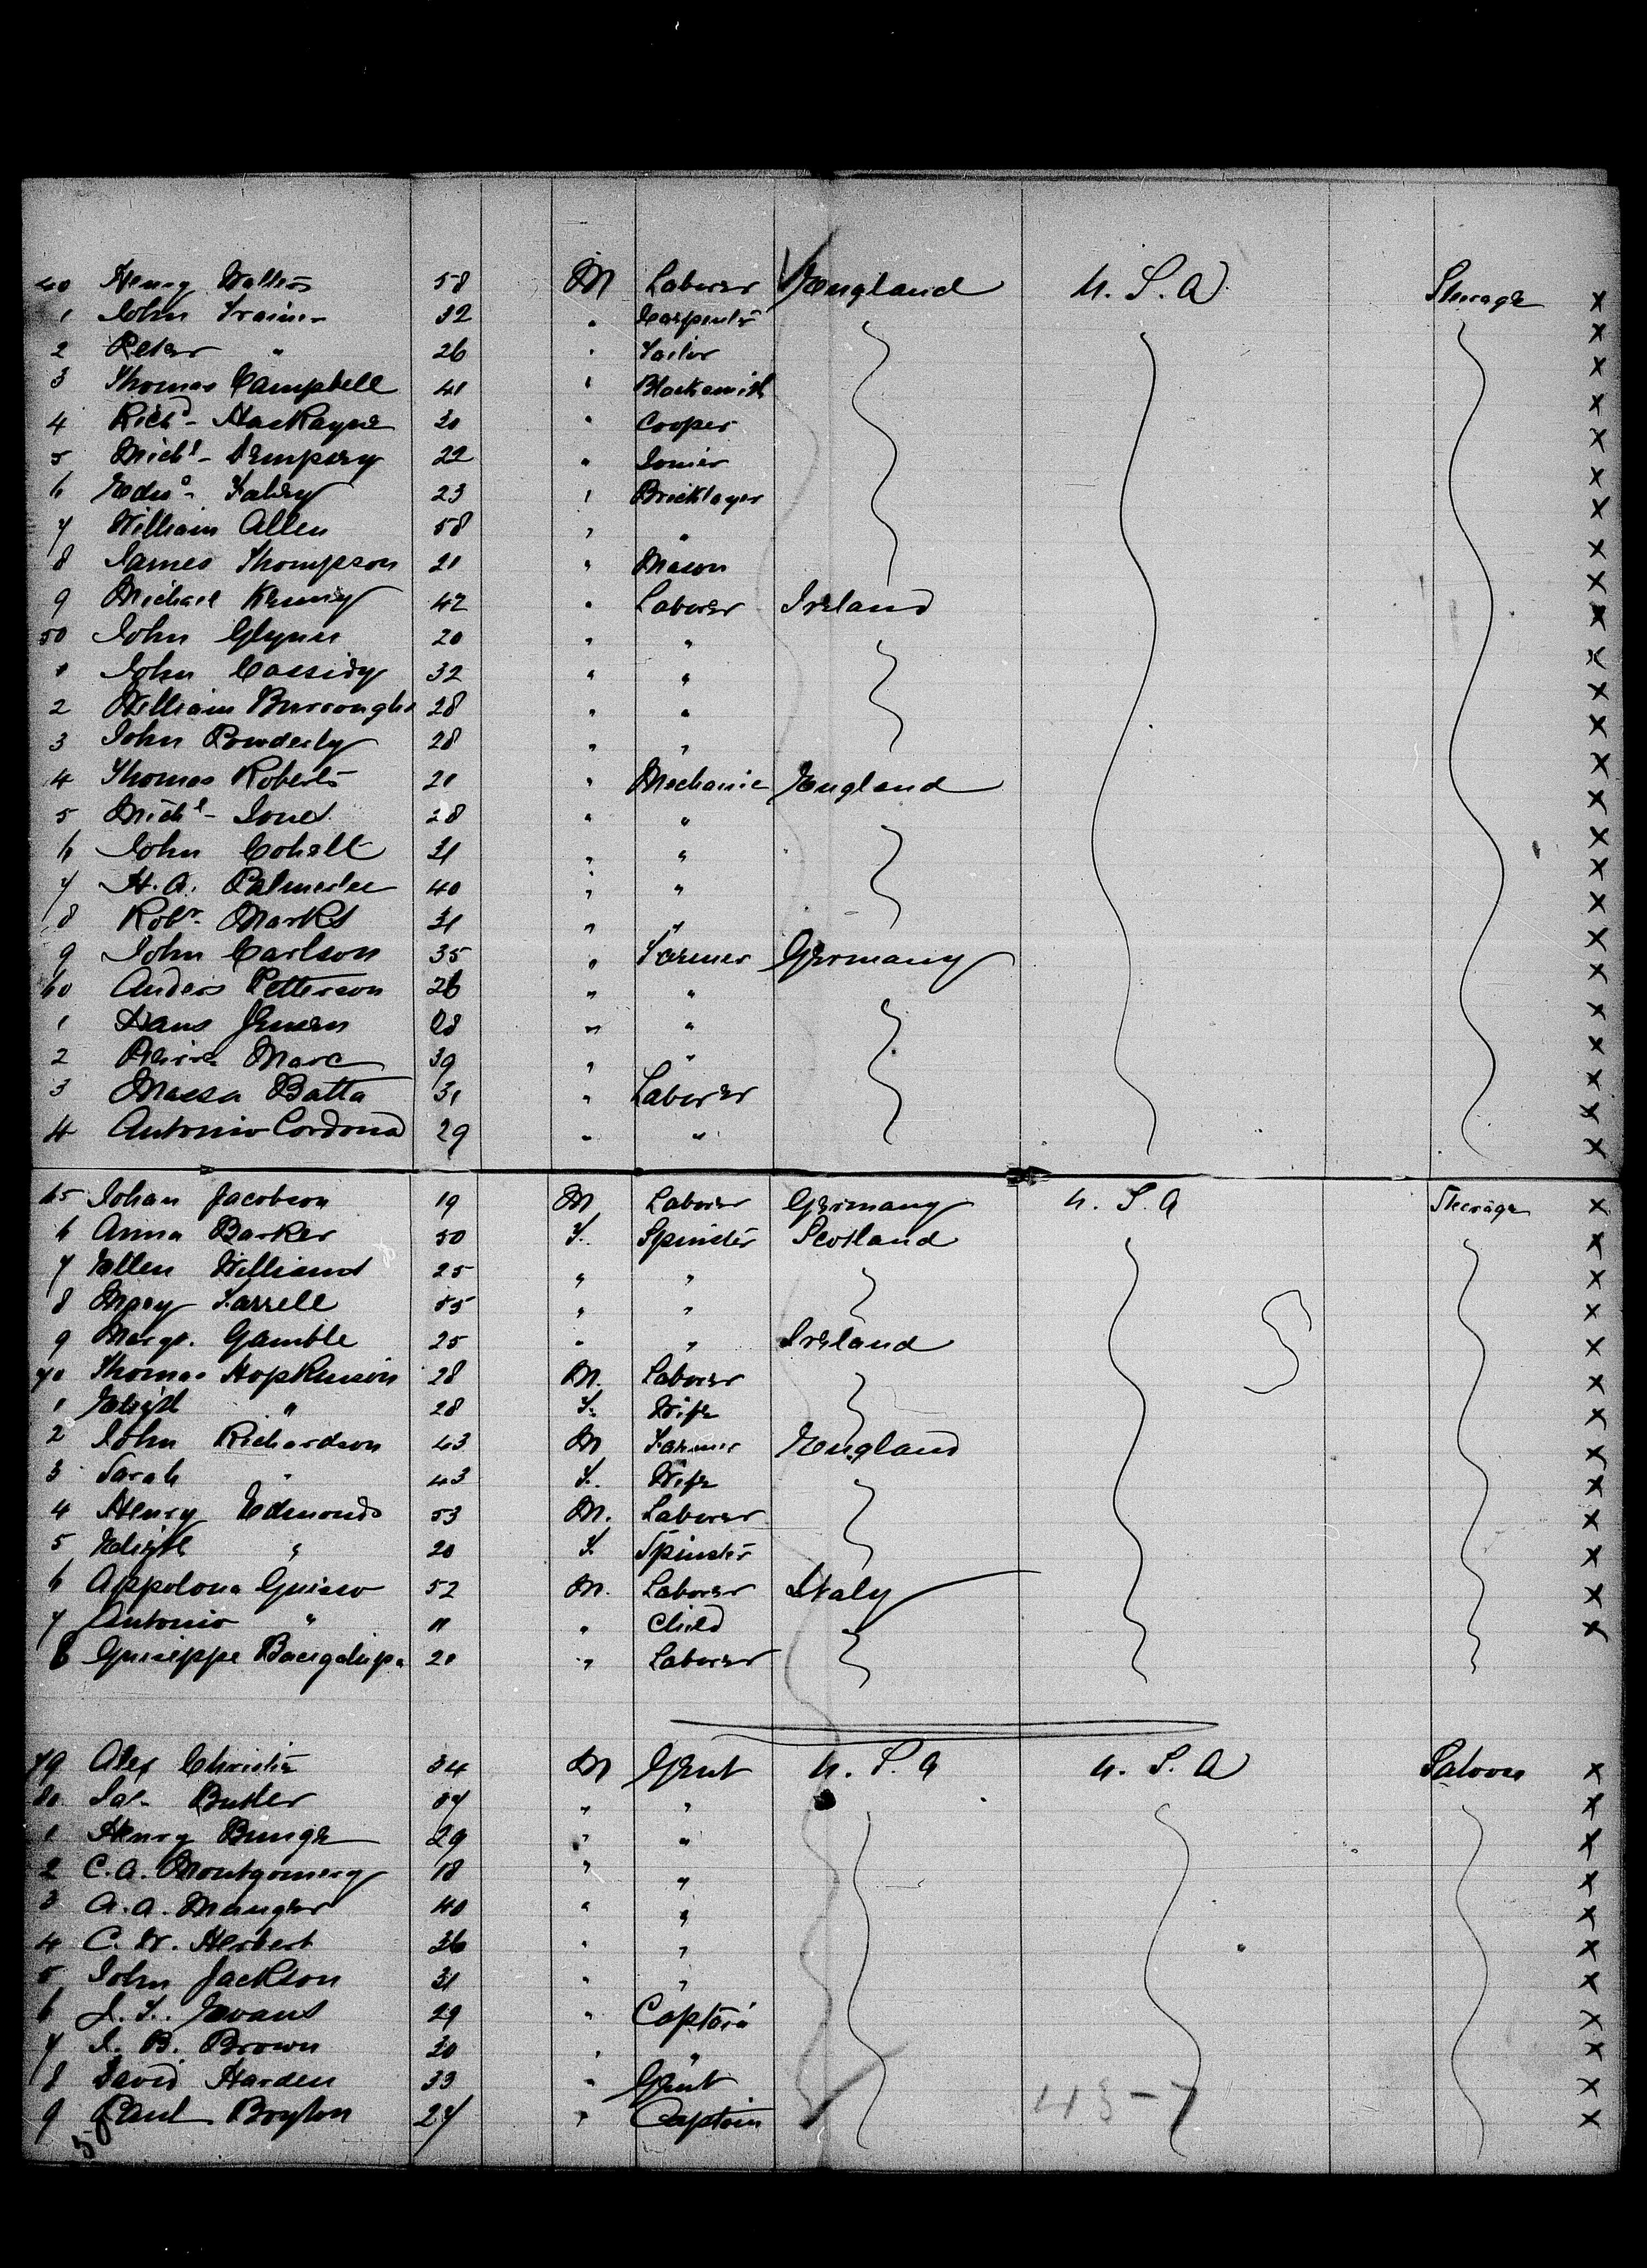 40 Henry Walters 58 M Laborer England U. S. A Steerage X
1 John Trainer 32 " Carpenter X
2 Peter " 26 " Tailor X
3 Thomas Campbell 41 " Blacksmith X
4 Richd - MacKayne 30 " Cooper X
5 Michl - Dempsey 22 " Joiner X
6 Edwd - Fahey 23 " Bricklayer X
7 William Allen 58 " " X
8 James Thompson 21 " Mason X
9 Michael Kenny 42 " Laborer Ireland X
50 John Glynn 20 " " X
1 John Cassidy 32 " " X
2 William Burroughs 28 " " X
3 John Powderly 28 " " X
4 Thomas Roberts 21 " Mechanic England X
5 Michl - Jones 28 " " X
6 John " " X
7 H. A. Palmerlee 40 " " X
8 Robt - Marks 31 " " X
9 John Carlson 35 " Farmer Germany X
60 Anders Petterson 26 " " X
1 Hans Jensen 28 " " X
2 Marc 39 " " X
3 Batta 31 " Laborer X
4 Antonio Cordona 29 " " X
65 Johan Jacobson 19 M Laborer Germany U. S. A Steerage X
6 Anna Barker 50 F. Spinster Scotland X
7 Ellen Williams 25 " " X
8 Mary Farrell 55 " " X
9 Margt. Gamble 25 " " Ireland X
70 Thomas Hopkinson 28 M. Laborer X
1 Elizth " 28 F. Wife X
2 John Richardson 43 M Farmer England X
3 Sarah " 43 F. Wife X
4 Henry Edmonds 53 M. Laborer X
5 Elizth " 20 F. Spinster X
6 Appolona Guisso 52 M. Laborer Italy X
7 Antonio " 11 " Child X
8 Guiseppe 21 " Laborer
79 Alex Christie 34 M Gent U. S. A U. S. A Saloon X
80 Jas. Butler 37 " " X
1 Henry Bunge 29 " " X
2 C. A. Montgomery 18 " " X
3 A. A. Manger 40 " " X
4 C. W. Herbert 26 " " X
5 John Jackson 31 " " X
6 J. F. Evans 29 " Captain X
7 J. B. Brown 30 " " X
8 David Harden 33 " Gent X
9 Paul Boyton 27 " Captain X
50
43-7